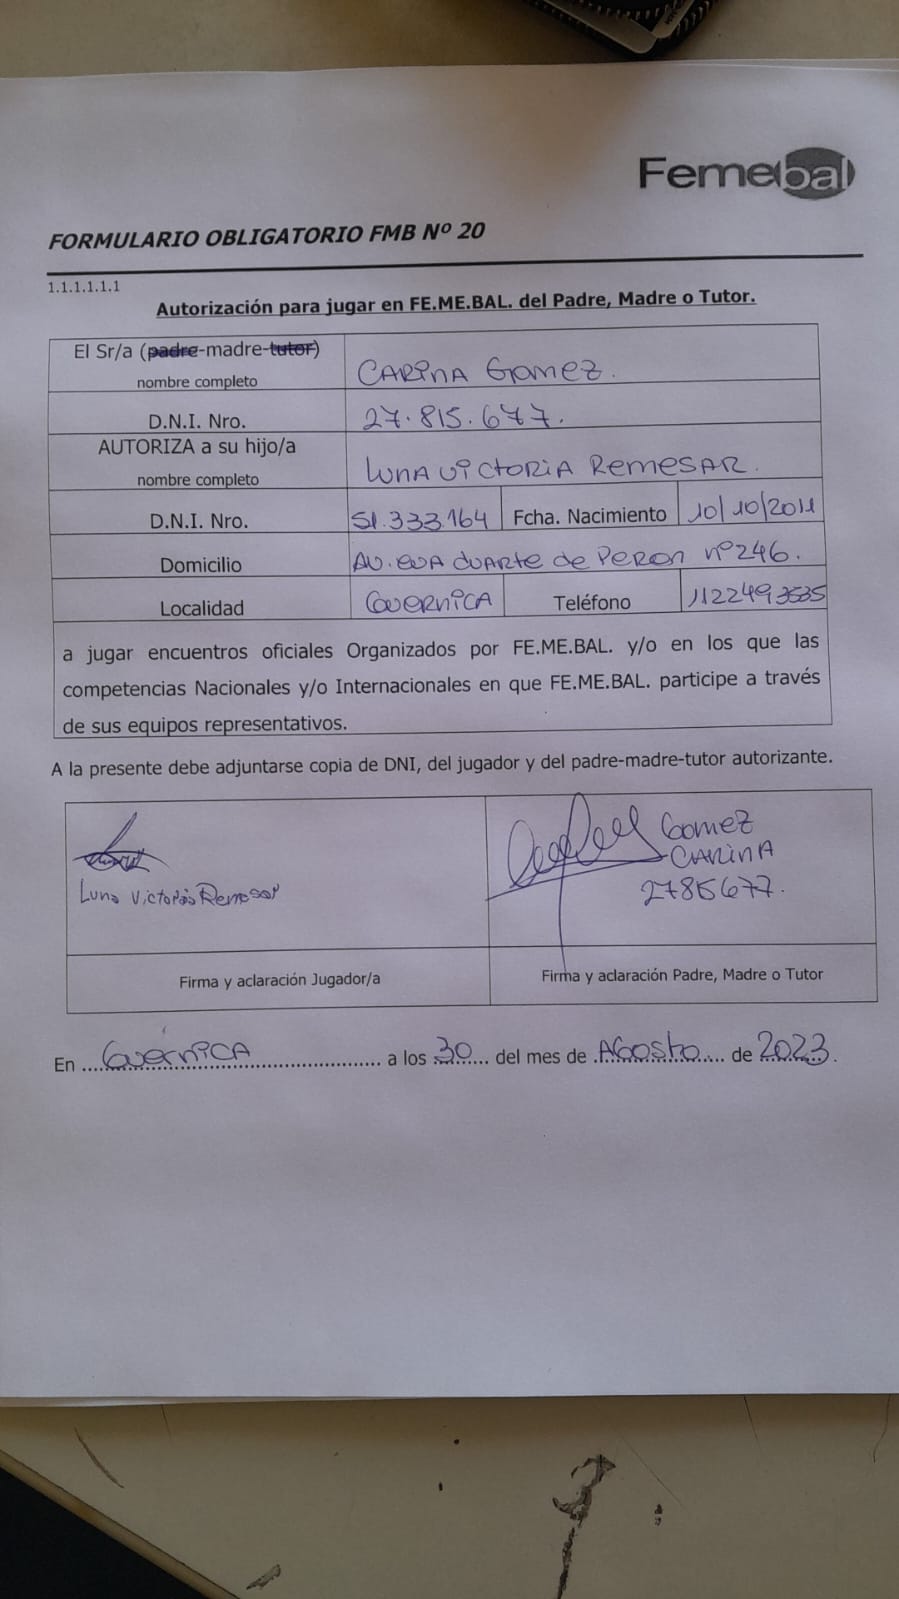 Femebal
FORMULARIO OBLIGATORIO FMB Nº 20
1.1.1.1.1.1
Autorización para jugar en FE.ME.BAL. del Padre, Madre o Tutor.
El Sr/a (padre-madre-tutor)
nombre completo
CARINA Gomez.
D.N.I. Nro.
27.815.677.
AUTORIZA a su hijo/a
nombre completo
LUNA VICTORIA Remesar.
D.N.I. Nro.
51.333.164
Fcha. Nacimiento
10/10/2011
Domicilio
AV. EVA DUARTE de PERON nº 246.
Localidad
GUERNICA
Teléfono
1122493535
a jugar encuentros oficiales Organizados por FE.ME.BAL. y/o en los que las
competencias Nacionales y/o Internacionales en que FE.ME.BAL. participe a través
de sus equipos representativos.
A la presente debe adjuntarse copia de DNI, del jugador y del padre-madre-tutor autorizante.
Luna Victoria Remesar
Gomez
CARINA
2785677.
Firma y aclaración Jugador/a
Firma y aclaración Padre, Madre o Tutor
En ....Guernica.... a los 30 .... del mes de .Agosto.... de 2023.